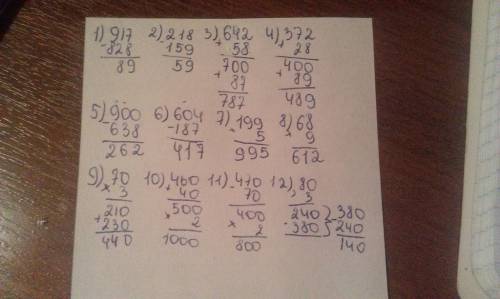 1) 917 2) 218 3) 642 4) 372
- 828 - 159 + 58 + 28
89 59 700 400
+ 87 + 89
787 489
5) 900 6) 604 7) 199 8) 68
- 638 - 187 × 5 × 9
262 417 995 612
9) 70 10) 460 11) 470 12) 80
× 3 + 40 - 70 × 3
210 500 400 240 - 380
+ 230 × 2 × 2 - 380 240
440 1000 800 140